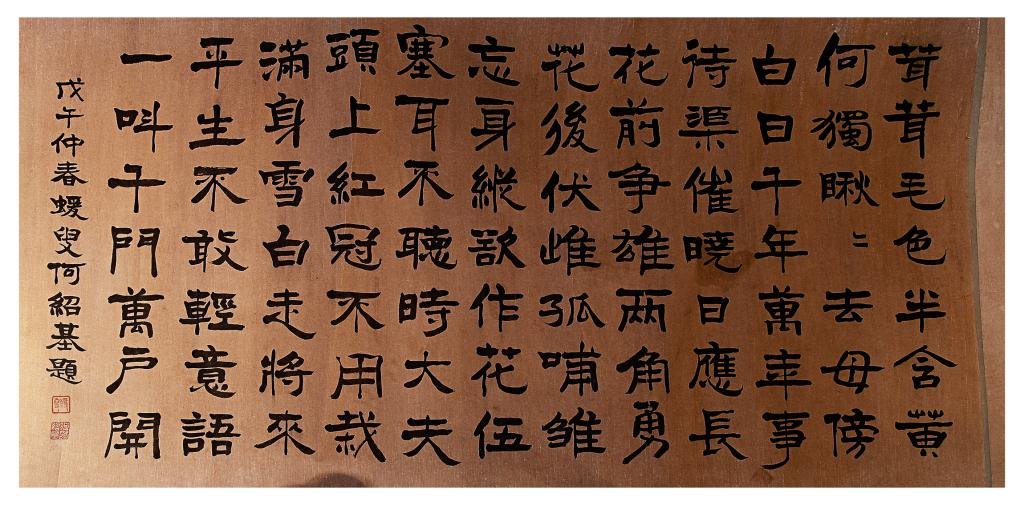 茸茸毛色半含黄
何獨瞅〻去母傍
白日千年萬年事
待渠催曉日應長
花前争雄两角勇
花後伏雌孤哺雏
忘身縱欲作花伍
塞耳不聽時大夫
頭上紅冠不用栽
滿身雪白走將來
平生不敢輕意語
一叫千門萬户開
戊午仲春蝯叟何紹基題